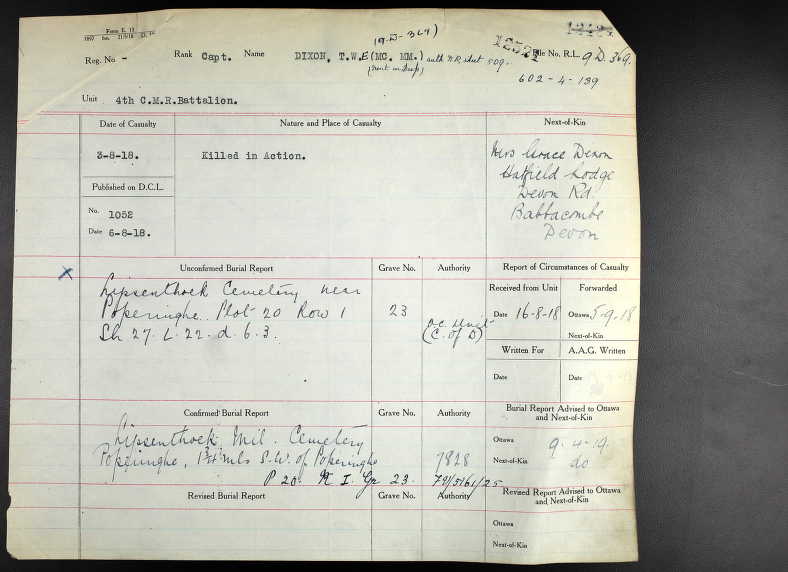 Form E. 13
(9.D-369)
Reg. No -
Rank Capt. Name DIXON, T.W.E (MC. MM.) auth
File No. R.L. 9 D. 369.
602-4-139
Unit 4th C.M.R.Battalion.
Date of Casualty Nature and Place of Casualty Next-of-Kin
3-8-18. Killed in Action.
Mrs Grace Dixon
Hatfield Lodge
Devon Rd.
Babbacombe
Devon
Published on D.C.L.
No. 1052
Date 6-8-18.
Unconfirmed Burial Report Grave No. Authority Report of Circumstances of Casualty
Lijssenthoek Cemetery near
Poperinghe. Plot 20 Row 1 23
Sh 27. L. 22. d. 6. 3.
O.C. Unit
(C. of D)
Received from Unit Forwarded
Date 16-8-18 Ottawa 5-9-18
Next-of-Kin
Written For A.A.G. Written
Date Date
Confirmed Burial Report Grave No. Authority Burial Report Advised to Ottawa
and Next-of-Kin
Lijssenthoek Mil. Cemetery
Poperinghe, mls S.W. of Poperinghe 7828
P 20. R I. Gr 23. 79/5161/25
Ottawa 9-4-19.
Next-of-Kin do
Revised Burial Report Grave No. Authority Revised Report Advised to Ottawa
and Next-of-Kin
Ottawa
Next-of-Kin